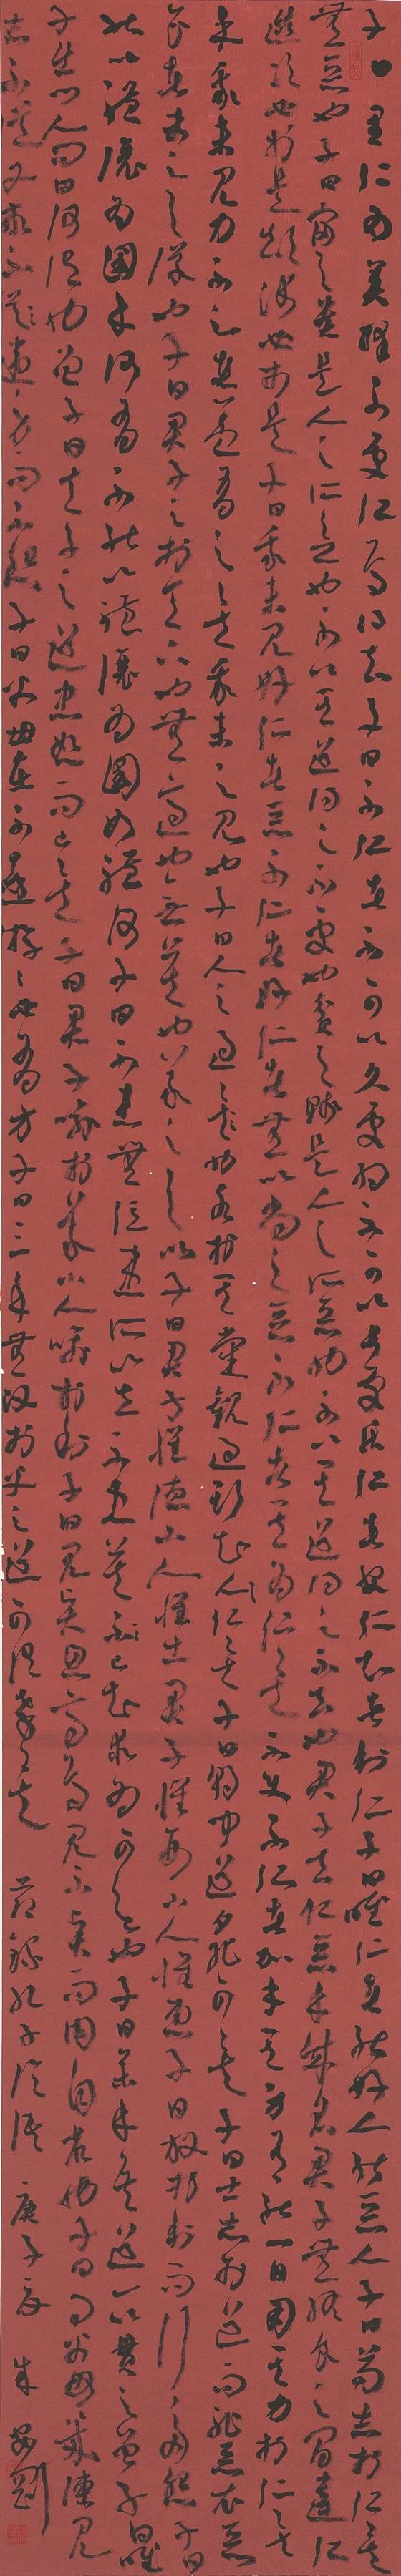 子曰里仁為美擇不處仁焉得知子曰不仁者不可以久處約不可以長處樂仁者安仁知者利仁子曰唯仁者能好人能惡人子曰苟志於仁矣
無惡也子曰富與貴是人之所欲也不以其道得之不處也貧與賤是人之所惡也不以其道得之不去也君子去仁惡乎成名君子無終食之間違仁
造次必於是顛沛必於是子曰我未見好仁者惡不仁者好仁者無以尚之惡不仁者其為仁矣不使不仁者加乎其身有能一日用其力於仁矣
乎我未見力不足者蓋有之矣我未之見也子曰人之過也各於其黨觀過斯知仁矣子曰朝聞道夕死可矣子曰士志於道而恥惡衣惡
食者未足與議也子曰君子之於天下也無適也無莫也義之與比子曰君子懷德小人懷土君子懷刑小人懷惠子曰放於利而行多怨子曰
能以禮讓為國乎何有不能以禮讓為國如禮何子曰不患無位患所以立不患莫己知求為可知也子曰參乎吾道一以貫之曾子曰唯
子出門人問曰何謂也曾子曰夫子之道忠恕而已矣子曰君子喻於義小人喻於利子曰見賢思齊焉見不賢而內自省也子曰事父母幾諫見
志不從又敬不違勞而不怨子曰父母在不遠遊遊必有方子曰三年無改於父之道可謂孝矣 節錄孔子論語 庚子夏